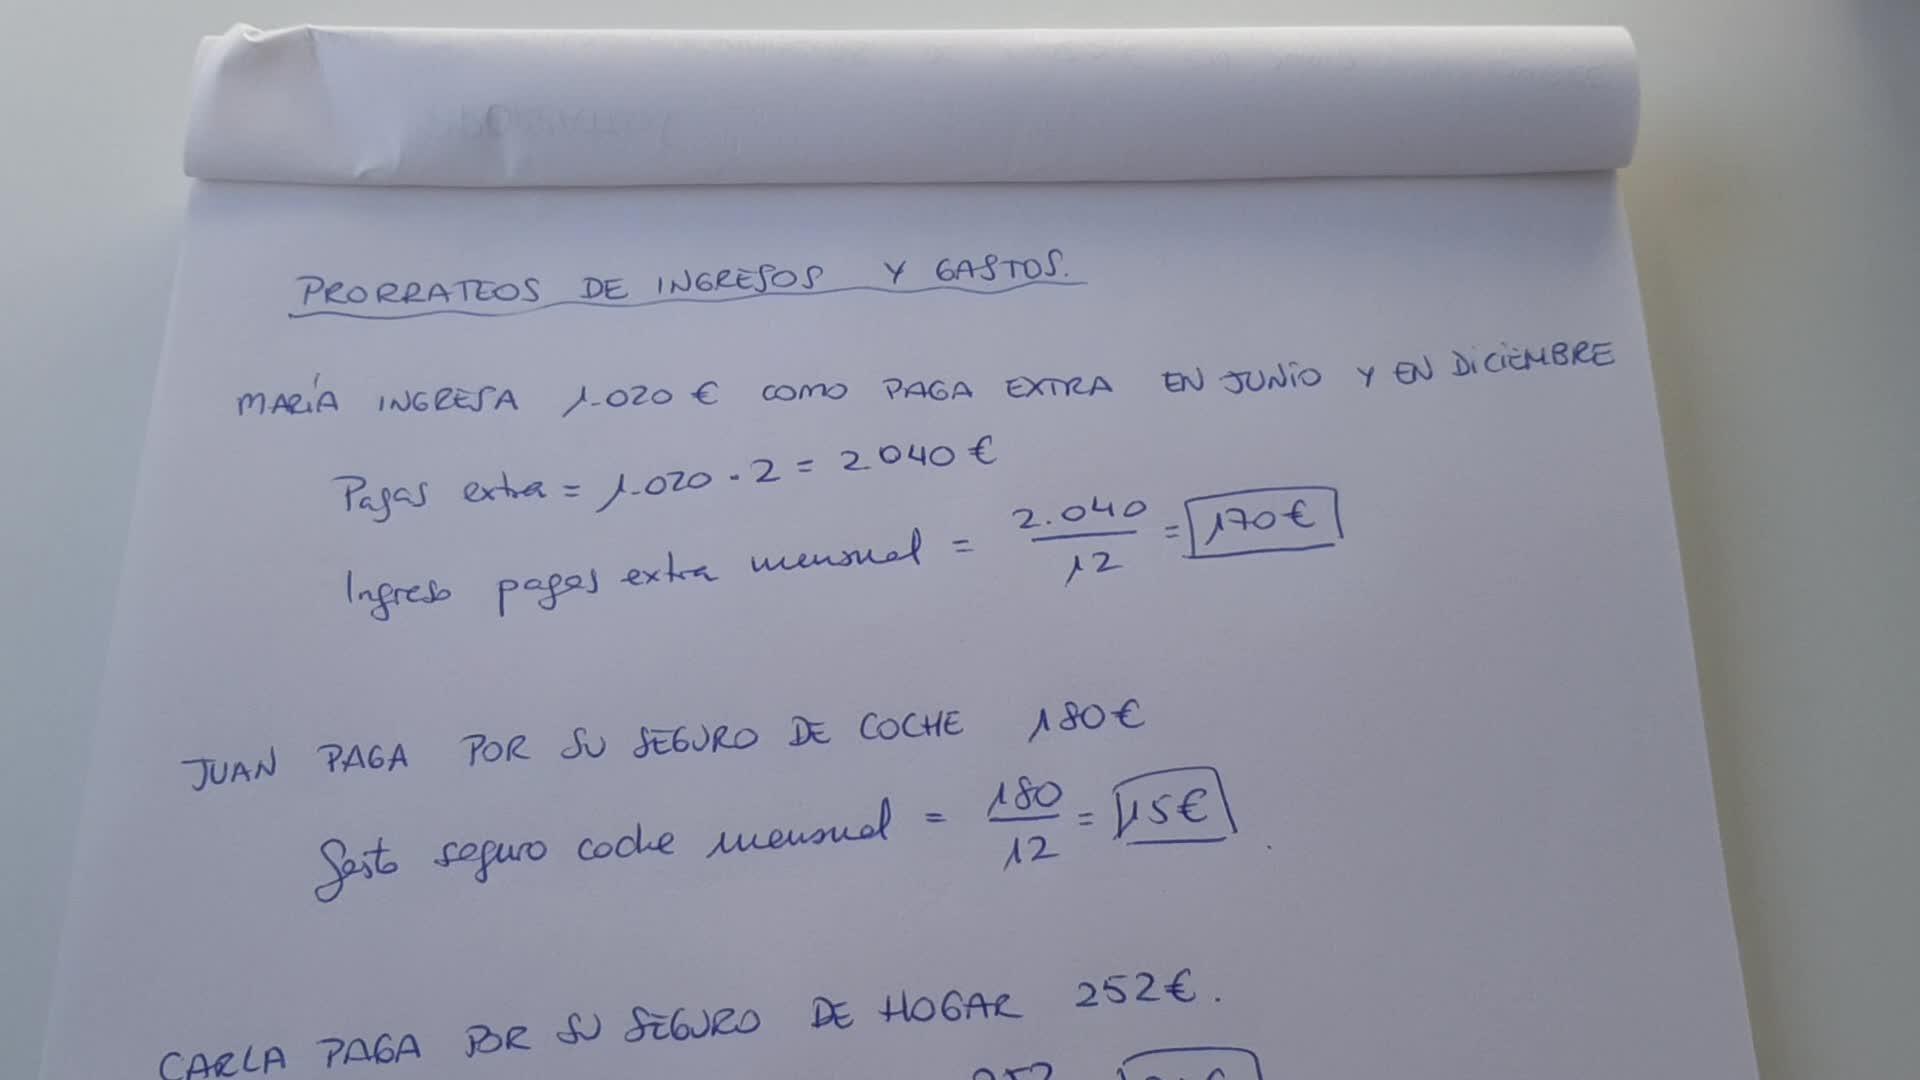 PRORRATEOS DE INGRESOS Y GASTOS.
MARÍA INGRESA 1.020 € COMO PAGA EXTRA EN JUNIO Y EN DICIEMBRE
Pagas extra = 1.020 · 2 = 2.040 €
Ingreso pagas extra mensual = 2.040 / 12 = 170 €
JUAN PAGA POR SU SEGURO DE COCHE 180 €
Gasto seguro coche mensual = 180 / 12 = 15 €
CARLA PAGA POR SU SEGURO DE HOGAR 252 €.
252